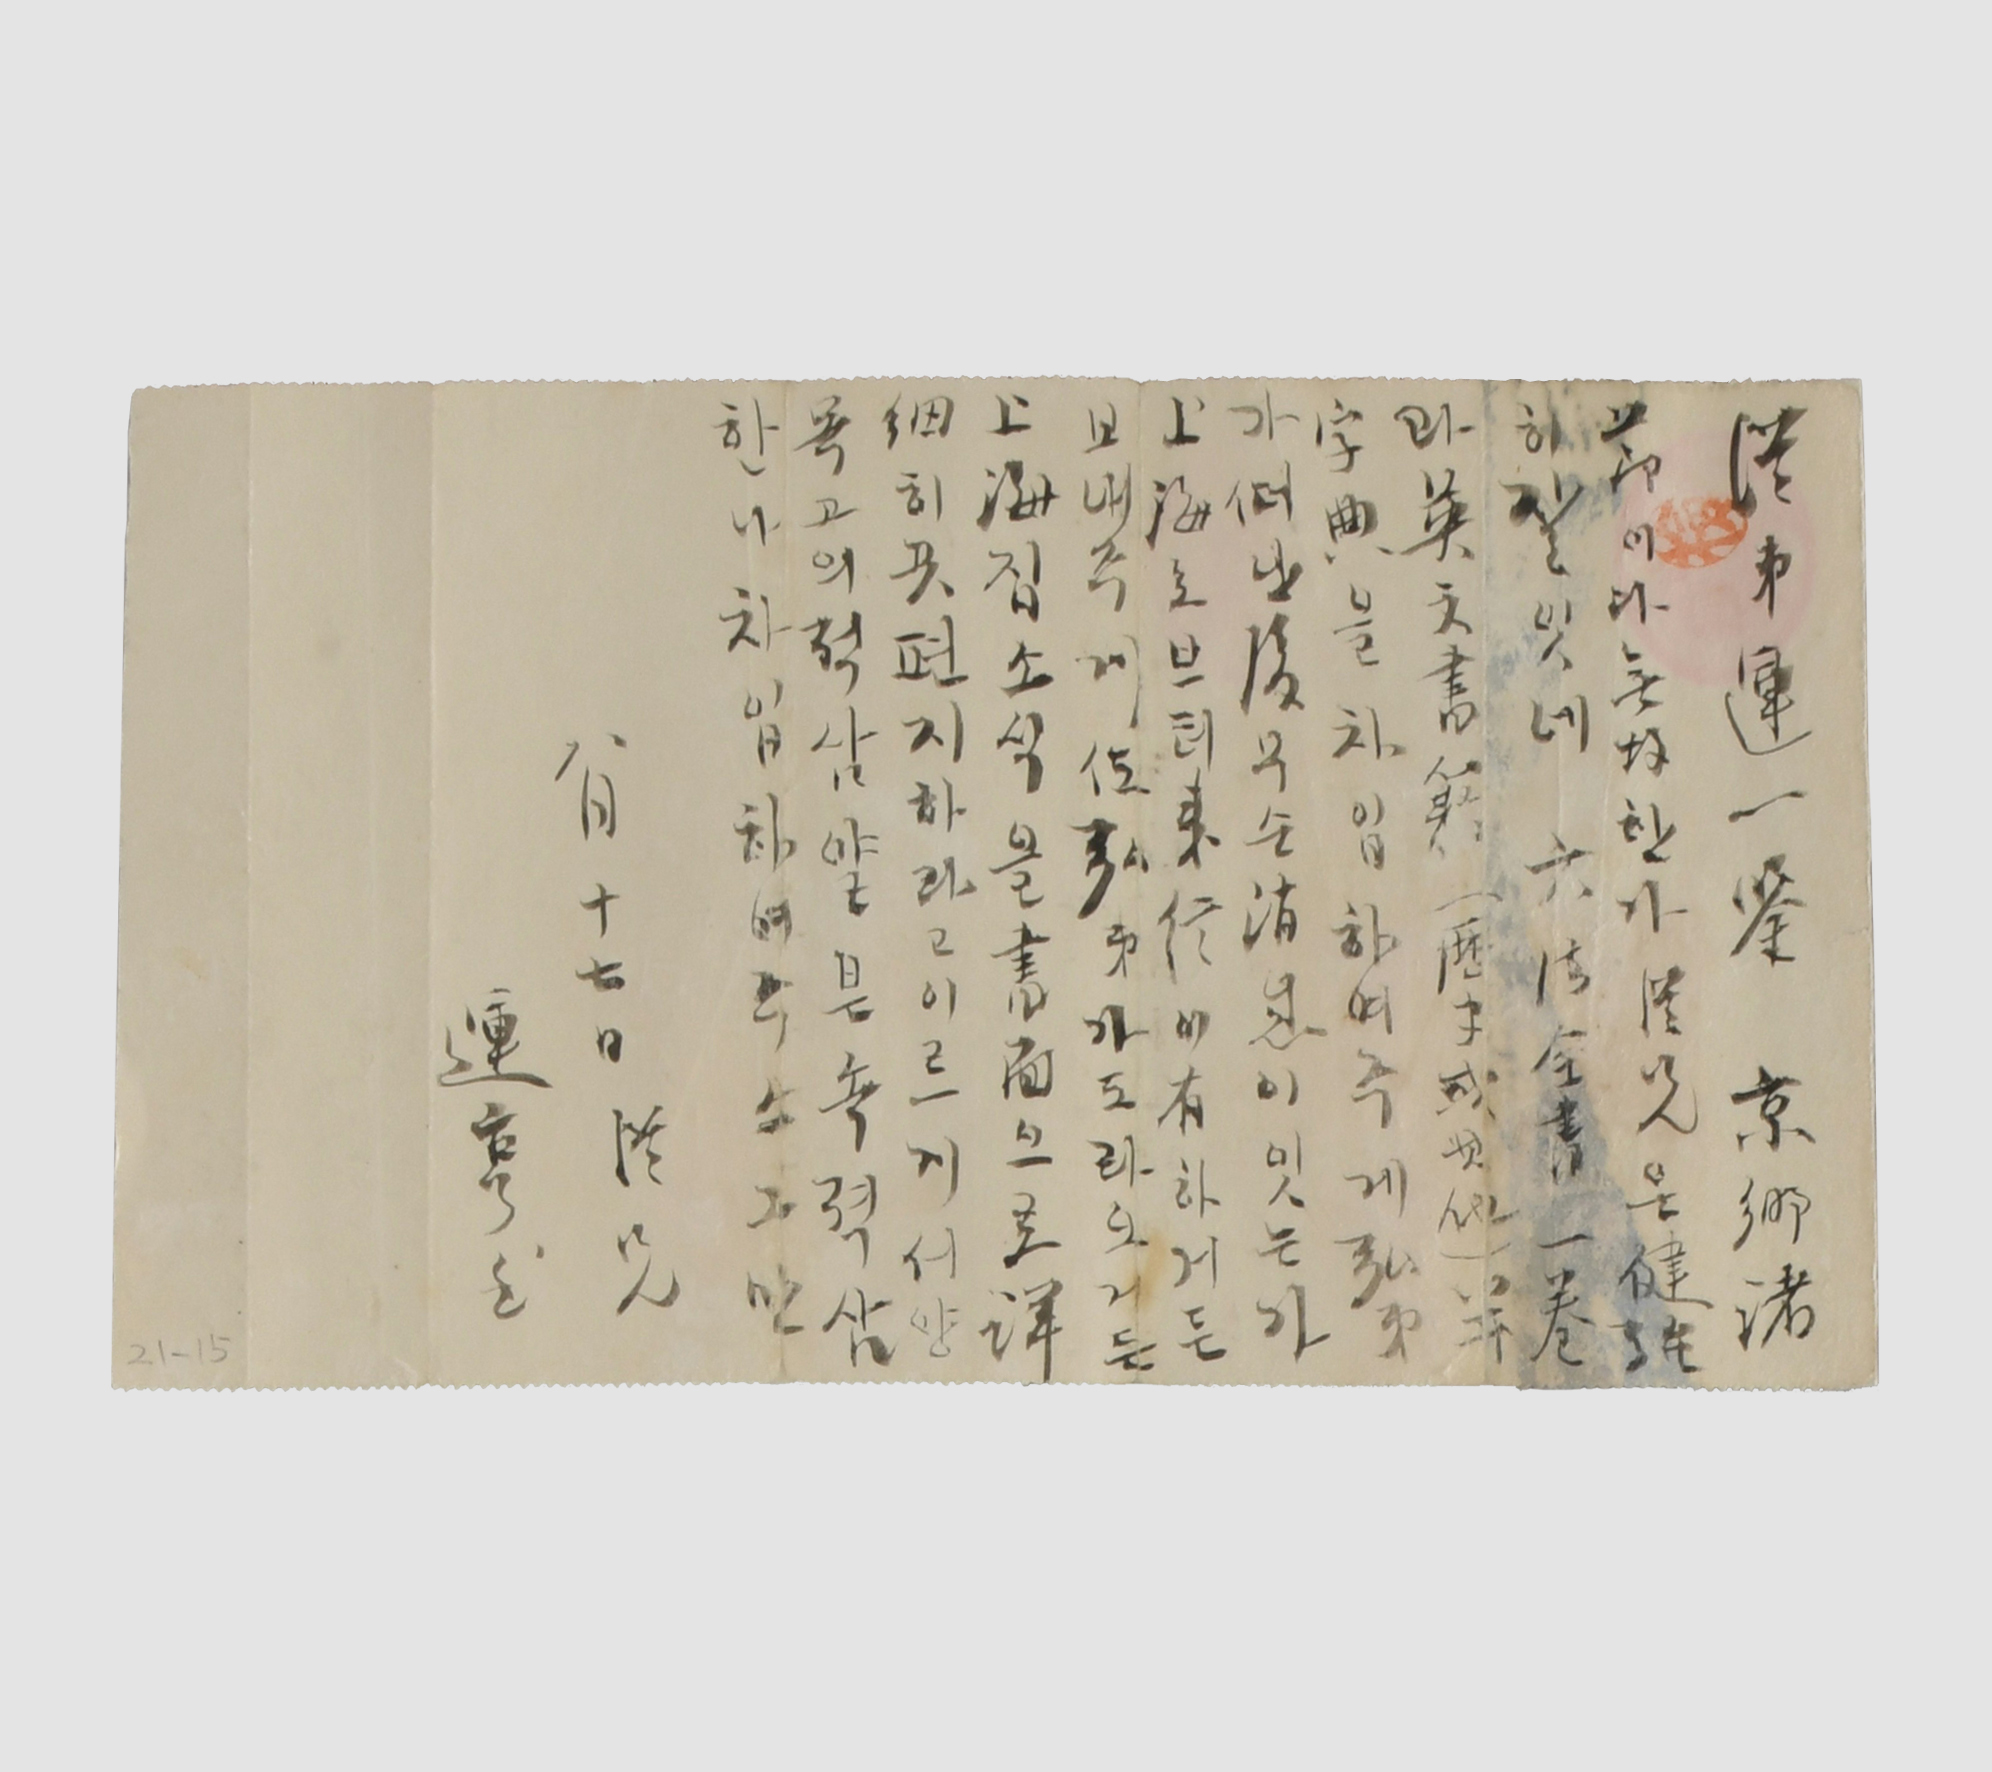 從弟運一鑒 京鄕諸
節이다無故한가 從兄은健在
히잘잇네 六法全書一卷
과英文書籍(歷史或其他)
字典을차입하여주게 弘弟
가出後무슨消息이잇는가
上海로브터來信이有하거든
보내주게 弘弟가도라오거든
上海집소식을書面으로詳
細히끗편지하라고이르게 서양
목고의적삼얇은속적삼
한나차입하여주소그만
八月十七日 從兄
運亨
21-15